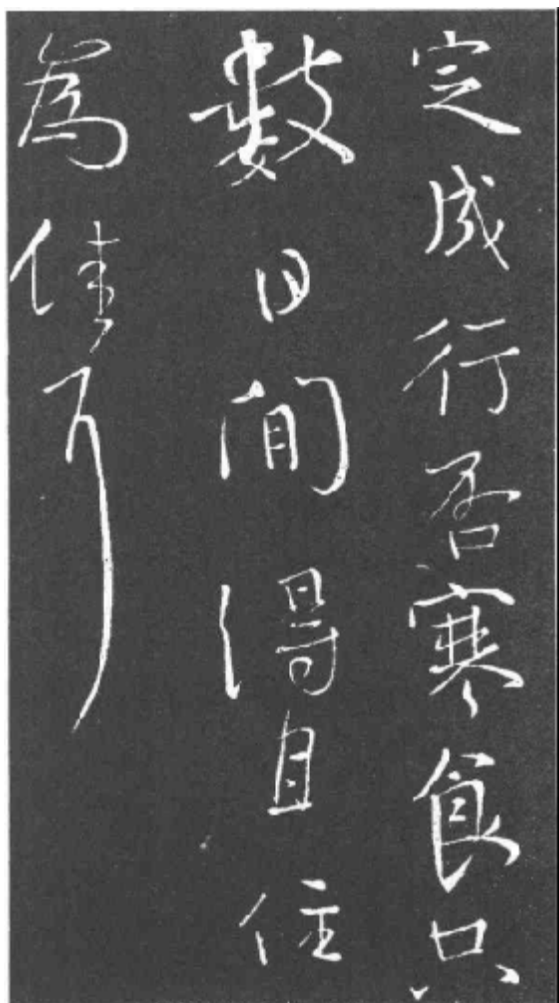 定成行否寒食只
數日間得且住
為佳耳